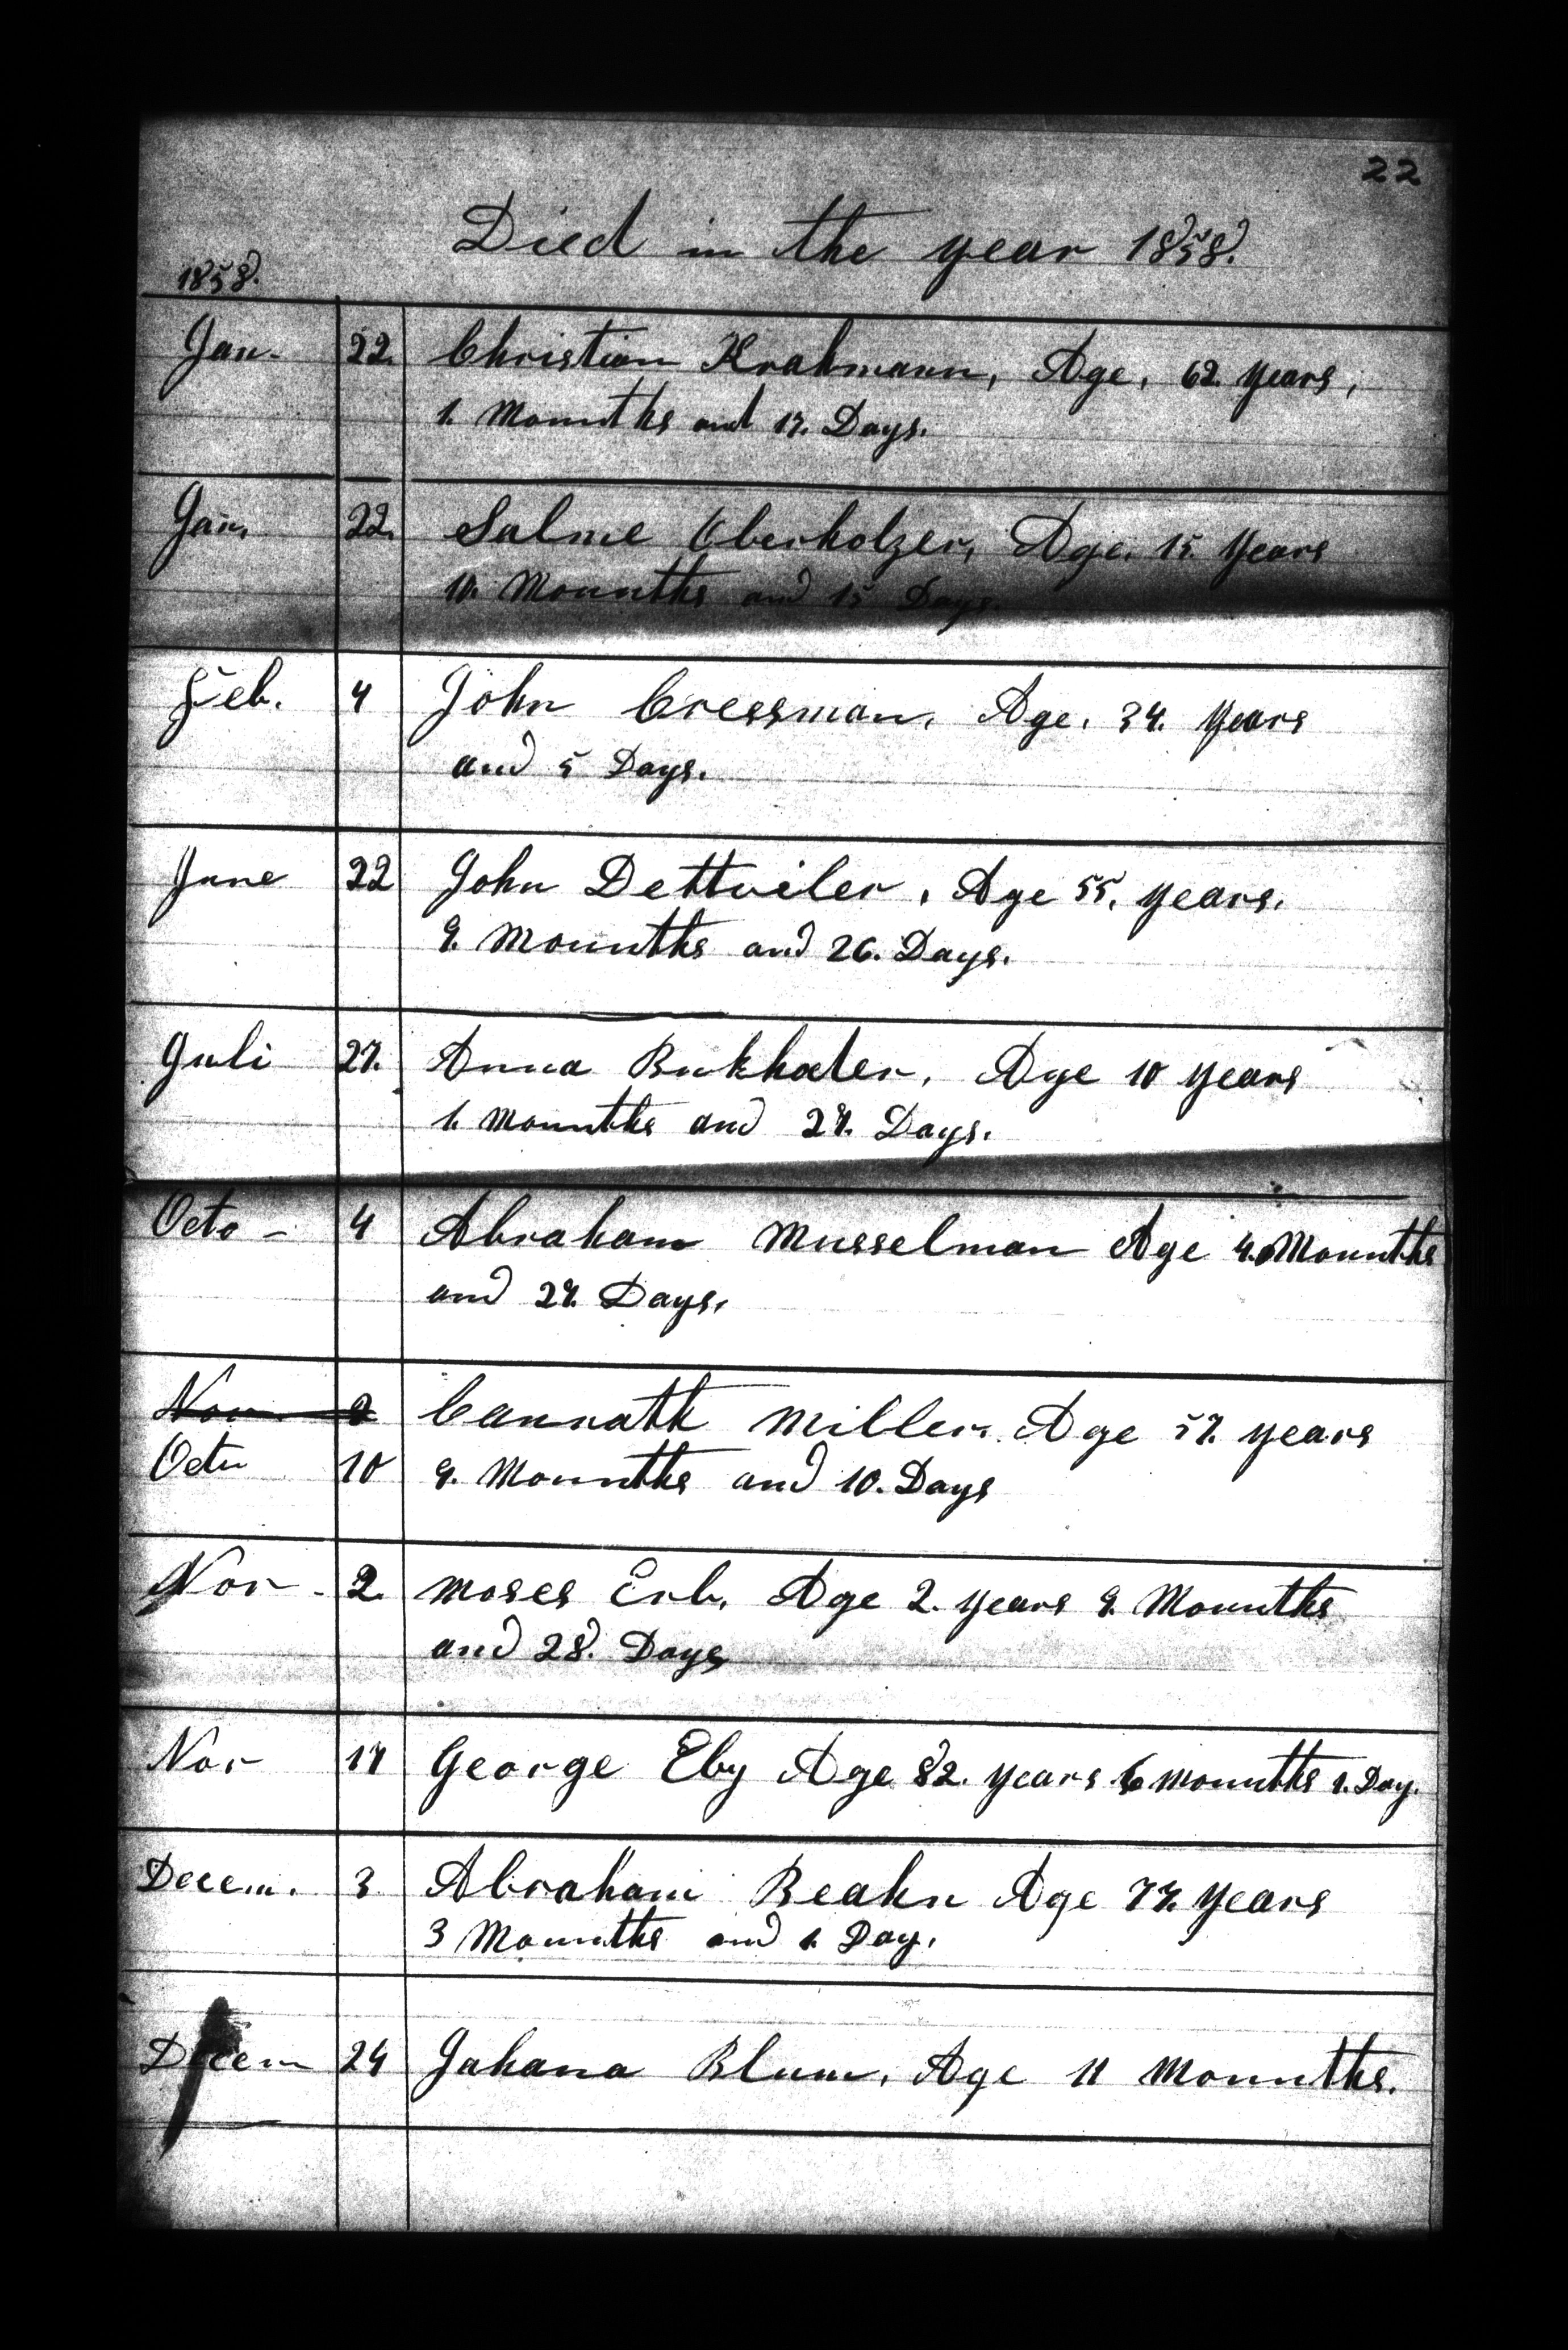 22
Died in the year 1858.
1858.
Jan. 22. Christian Krahmann, Age, 62 years,
1. Mounths and 17. Days.
Jan. 22. Salme Oberholzer, Age. 15 Years
10. Mounths and 15 Days.
Feb. 4 John Cressman, Age. 34. Years
and 5 Days.
June 22 John Dettwiler, Age 55, years.
9. Mounths and 26. Days.
Juli 27. Anna Bukhaler, Age 10 years
1. Mounths and 27. Days.
Octo - 4 Abraham Musselman Age 4. Mounths
and 27. Days.
Nov. 2 Cannath Miller. Age 57. years
Octo 10 9. Mounths and 10. Days
Nov - 2. Moses Erb, Age 2. years 9. Mounths
and 28. Days
Nov 17 George Eby Age 82. years 6 mounths 1. Day.
Decem. 3 Abraham Beahn Age 77. Years
3 Mounths and 1. Day.
Decem 24 Johana Blum, Age 11 Mounths.